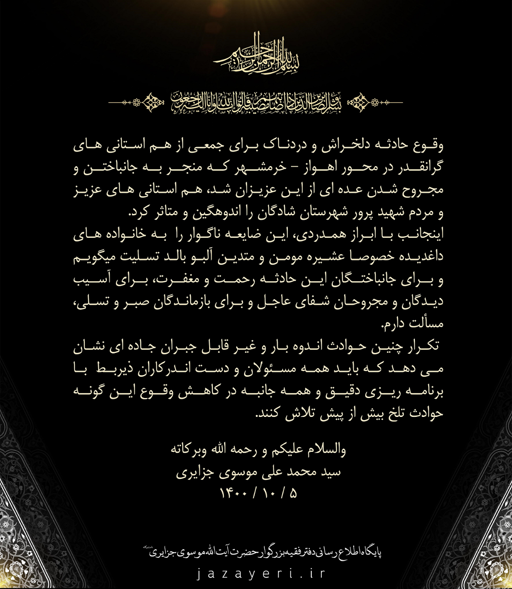 بسم الله الرحمن الرحیم
وبشر الصابرین الذین اذا اصابتهم مصیبة قالوا انا لله وانا الیه راجعون
وقوع حادثه دلخراش و دردناک برای جمعی از هم استانی های
گرانقدر در محور اهواز – خرمشهر که منجر به جانباختن و
مجروح شدن عده ای از این عزیزان شد، هم استانی های عزیز
و مردم شهید پرور شهرستان شادگان را اندوهگین و متاثر کرد.
اینجانب با ابراز همدردی، این ضایعه ناگوار را به خانواده های
داغدیده خصوصا عشیره مومن و متدین آلبو بالد تسلیت میگویم
و برای جانباختگان این حادثه رحمت و مغفرت، برای آسیب
دیدگان و مجروحان شفای عاجل و برای بازماندگان صبر و تسلی،
مسألت دارم.
تکرار چنین حوادث اندوه بار و غیر قابل جبران جاده ای نشان
می دهد که باید همه مسئولان و دست اندرکاران ذیربط با
برنامه ریزی دقیق و همه جانبه در کاهش وقوع این گونه
حوادث تلخ بیش از پیش تلاش کنند.
والسلام علیکم و رحمه الله وبرکاته
سید محمد علی موسوی جزایری
۵ / ۱۰ / ۱۴۰۰
پایگاه اطلاع رسانی دفتر فقیه بزرگوار حضرت آیت الله موسوی جزایری
jazayeri.ir